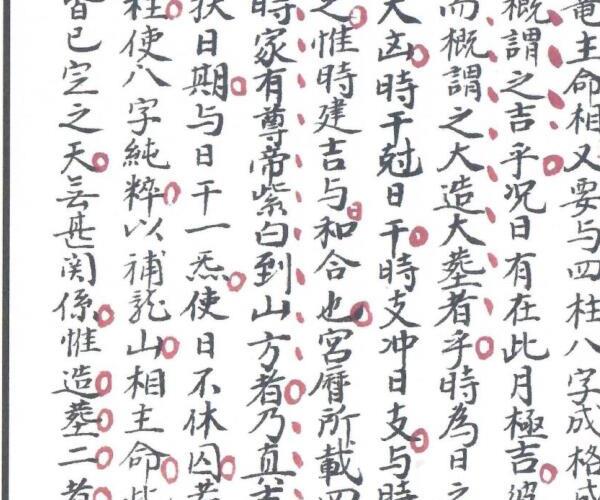 竜主命相又要与四柱八字成格
概謂之吉乎况日有在此月極吉
而概謂之大造大塟者乎時為日之
大凶時干尅日干時支冲日支与時
之惟時建吉与和合也宮曆所載四
時家有尊帝紫白到山方者乃真吉
扶日期与日干一炁使日不休囚若
柱使八字純粹以補龍山相主命
皆已定之天無甚関係惟造塟二者